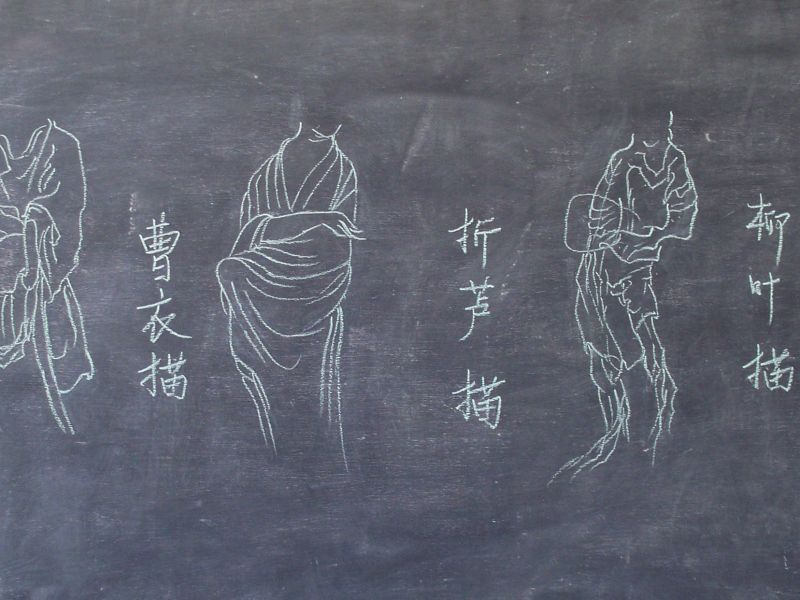 曹衣描
折芦描
柳叶描